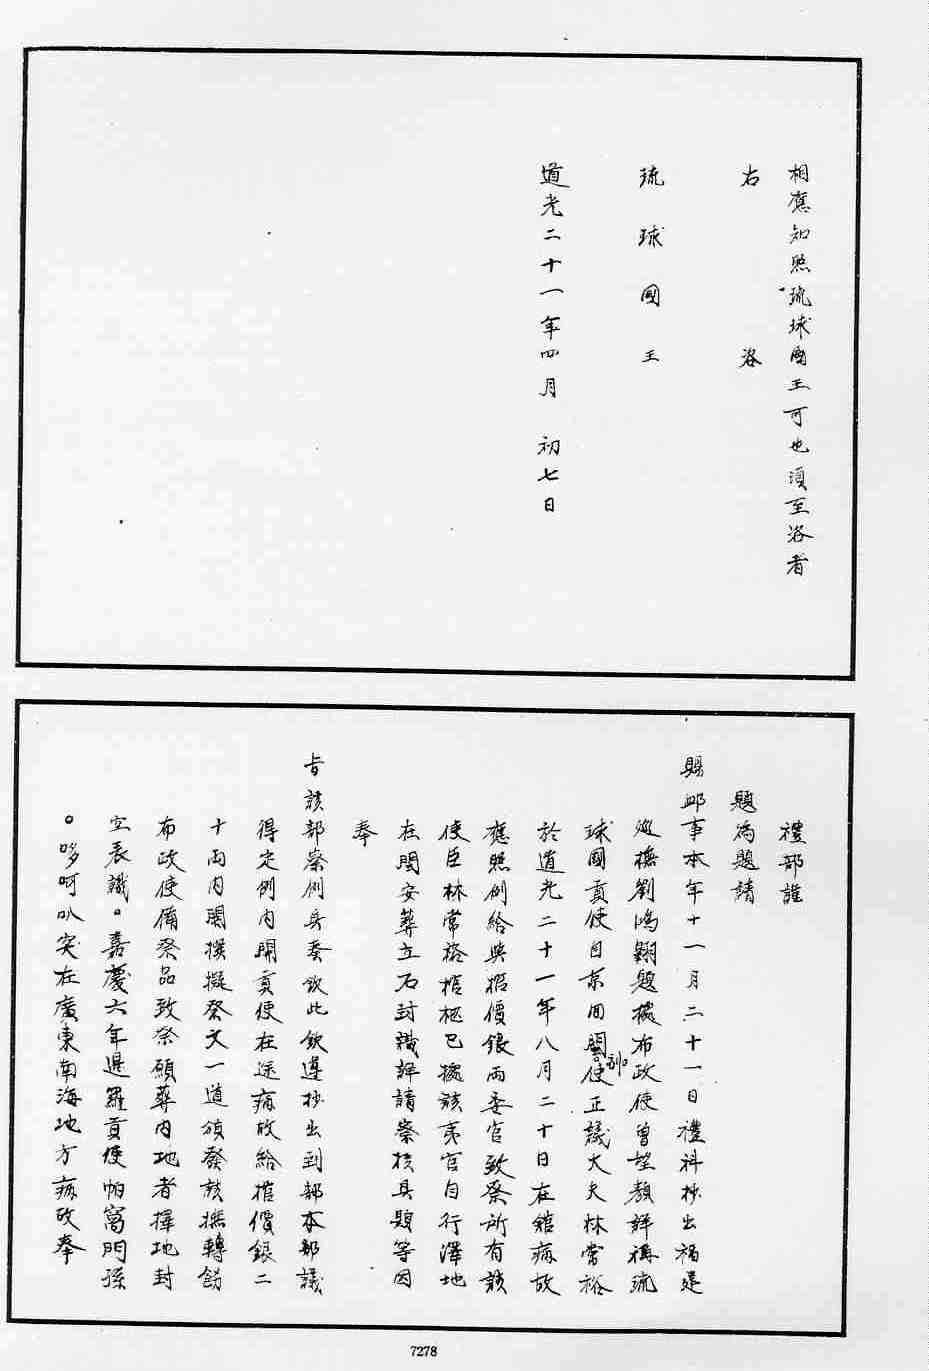 相應知照琉球國王可也須至咨者
右咨
琉球國王
道光二十一年四月初七日
禮部謹
題為題請
賜卹事本年十一月二十一日禮科抄出福建
巡撫劉鴻翱題據布政使曾望顏詳稱琉
球國貢使自京回閩副使正議大夫林常裕
於道光二十一年八月二十日在館病故
應照例給與棺價銀兩委官致祭所有該
使臣林常裕棺柩已據該夷官自行澤地
在閩安葬立石封識詳請察核具題等因
奉
旨該部察例具奏欽此欽遵抄出到部本部議
得定例內開貢使在途病故給棺價銀二
十兩內閣撰擬祭文一道頒發該撫轉飭
布政使備祭品致祭願葬內地者擇地封
立表識。嘉慶六年暹羅貢使帕窩們孫
。哆呵叭突在廣東南海地方病故奉
7278